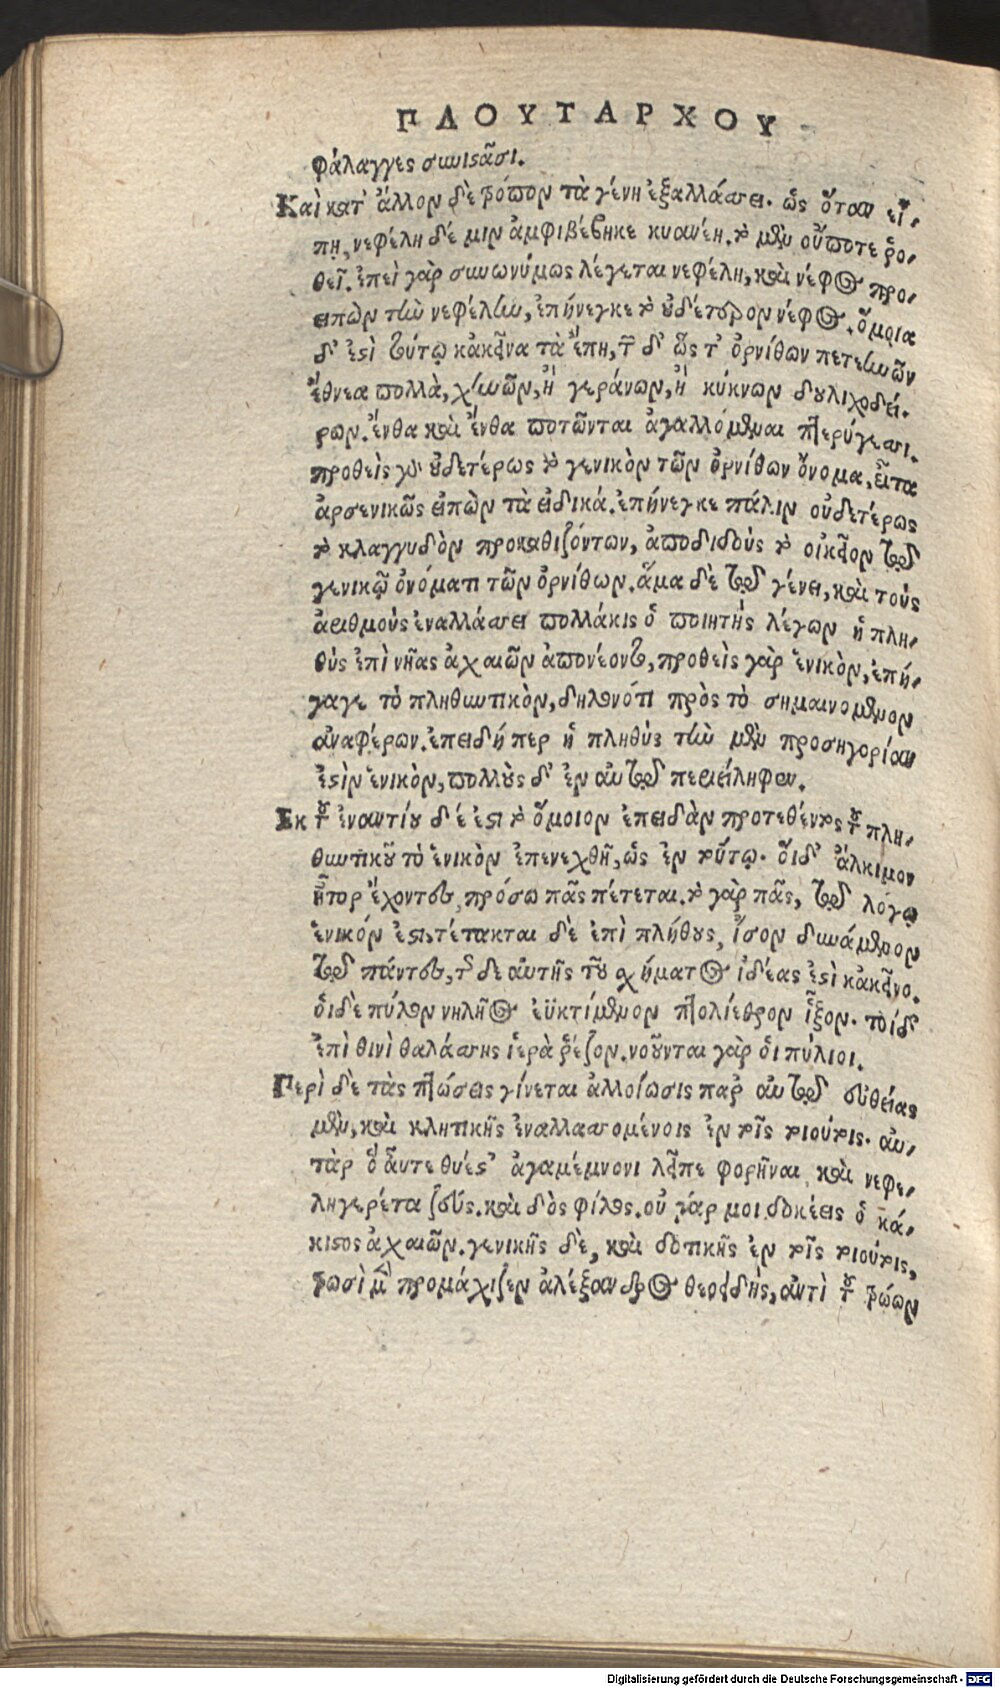 ΠΛΟΥΤΑΡΧΟΥ
φάλαγγες συνιςᾶσι.
Καὶ κατ' ἄλλον δὲ τρόπον τὰ γένη ἐξαλλάσσει. ὡς ὅταν εἴ-
πῃ, νεφέλη δέ μιν ἀμφιβέβηκε κυανέη. τὸ μὲν οὔποτε ῥο-
θεῖ. ἐπεὶ γὰρ συνωνύμως λέγεται νεφέλη, καὶ νέφος προ-
ειπὼν τὴν νεφέλην, ἐπήνεγκε τὸ οὐδέτερον νέφος. ὅμοια
δ' ἐςὶ τούτῳ κἀκεῖνα τὰ ἔπη, τῶν δ' ὥς τ' ὀρνίθων πετεινῶν
ἔθνεα πολλὰ, χηνῶν, ἢ γεράνων, ἢ κύκνων δουλιχοδεί-
ρων. ἔνθα καὶ ἔνθα ποτῶνται ἀγαλλόμεναι πτερύγεσσι.
προθεὶς γὰρ οὐδετέρως τὸ γενικὸν τῶν ὀρνίθων ὄνομα, εἶτα
ἀρσενικῶς εἰπὼν τὰ εἰδικά. ἐπήνεγκε πάλιν οὐδετέρως
τὸ κλαγγυδὸν προκαθιζόντων, ἀποδιδοὺς τὸ οἰκεῖον τῷ
γενικῷ ὀνόματι τῶν ὀρνίθων. ἅμα δὲ τῷ γένει, καὶ τοὺς
ἀριθμοὺς ἐναλλάσσει πολλάκις ὁ ποιητὴς λέγων ἡ πλη-
θὺς ἐπὶ νῆας ἀχαιῶν ἀπονέοντο, προθεὶς γὰρ ἑνικὸν, ἐπή-
γαγε τὸ πληθυντικὸν, δηλονότι πρὸς τὸ σημαινόμενον
ἀναφέρων. ἐπειδή περ ἡ πληθὺς τὴν μὲν προσηγορίαν
ἐςὶν ἑνικὸν, πολλοὺς δ' ἐν αὐτῷ περιείληφεν.
Ἐκ τοῦ ἐναντίου δέ ἐςι τὸ ὅμοιον ἐπειδὰν προτεθέντος τοῦ πλη-
θυντικοῦ τὸ ἑνικὸν ἐπενεχθῇ, ὡς ἐν τούτῳ. οἵδ' ἄλκιμον
ἦτορ ἔχοντες, πρόσω πᾶς πέτεται. τὸ γὰρ πᾶς, τῷ λόγῳ
ἑνικόν ἐςι, τέτακται δὲ ἐπὶ πλήθους, ἴσον δυνάμενον
τῷ πάντες, τῆς δὲ αὐτῆς τοῦ σχήματος ἰδέας ἐςὶ κἀκεῖνο.
ὁιδὲ πύλον νηλῆος ἐϋκτίμενον πτολίεθρον ἷξον. τοὶ δ'
ἐπὶ θινὶ θαλάσσης ἱερὰ ῥέζον. νοοῦνται γὰρ ὁι πύλιοι.
Περὶ δὲ τὰς πτώσεις γίνεται ἀλλοίωσις παρ' αὐτῷ εὐθείας
μὲν, καὶ κλητικῆς ἐναλλασσομένοις ἐν τοῖς τοιούτοις. αὐ-
τὰρ ὁ αὖτε θυές' ἀγαμέμνονι λεῖπε φορῆναι, καὶ νεφε-
ληγερέτα ζεύς. καὶ δὸς φίλος. οὐ γάρ μοι δοκέεις ὁ κά-
κιςος ἀχαιῶν. γενικῆς δὲ, καὶ δοτικῆς ἐν τοῖς τοιούτοις,
τρωσὶ μὲν προμάχιζεν ἀλέξανδρος θεοειδὴς, ἀντὶ τοῦ τρώων
Digitalisierung gefördert durch die Deutsche Forschungsgemeinschaft - DFG